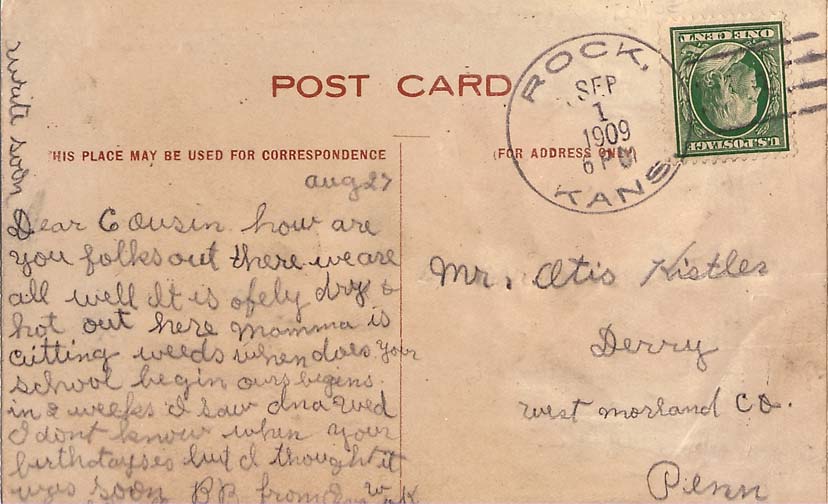 POST CARD
ROCK,
SEP
1
1909
6 PM
KANS.
U.S.POSTAGE
ONE CENT
HIS PLACE MAY BE USED FOR CORRESPONDENCE
(FOR ADDRESS ONLY)
write soon
aug 27
Dear Cousin how are
you folks out there we are
all well It is ofely dry &
hot out here Momma is
citting weeds when does your
school begin ours begins
in 2 weeks I saw Wed
I dont know when your
birthdayses but I thought it
was soon from
Mr. Otis Kistler
Derry
west morland CO.
Penn